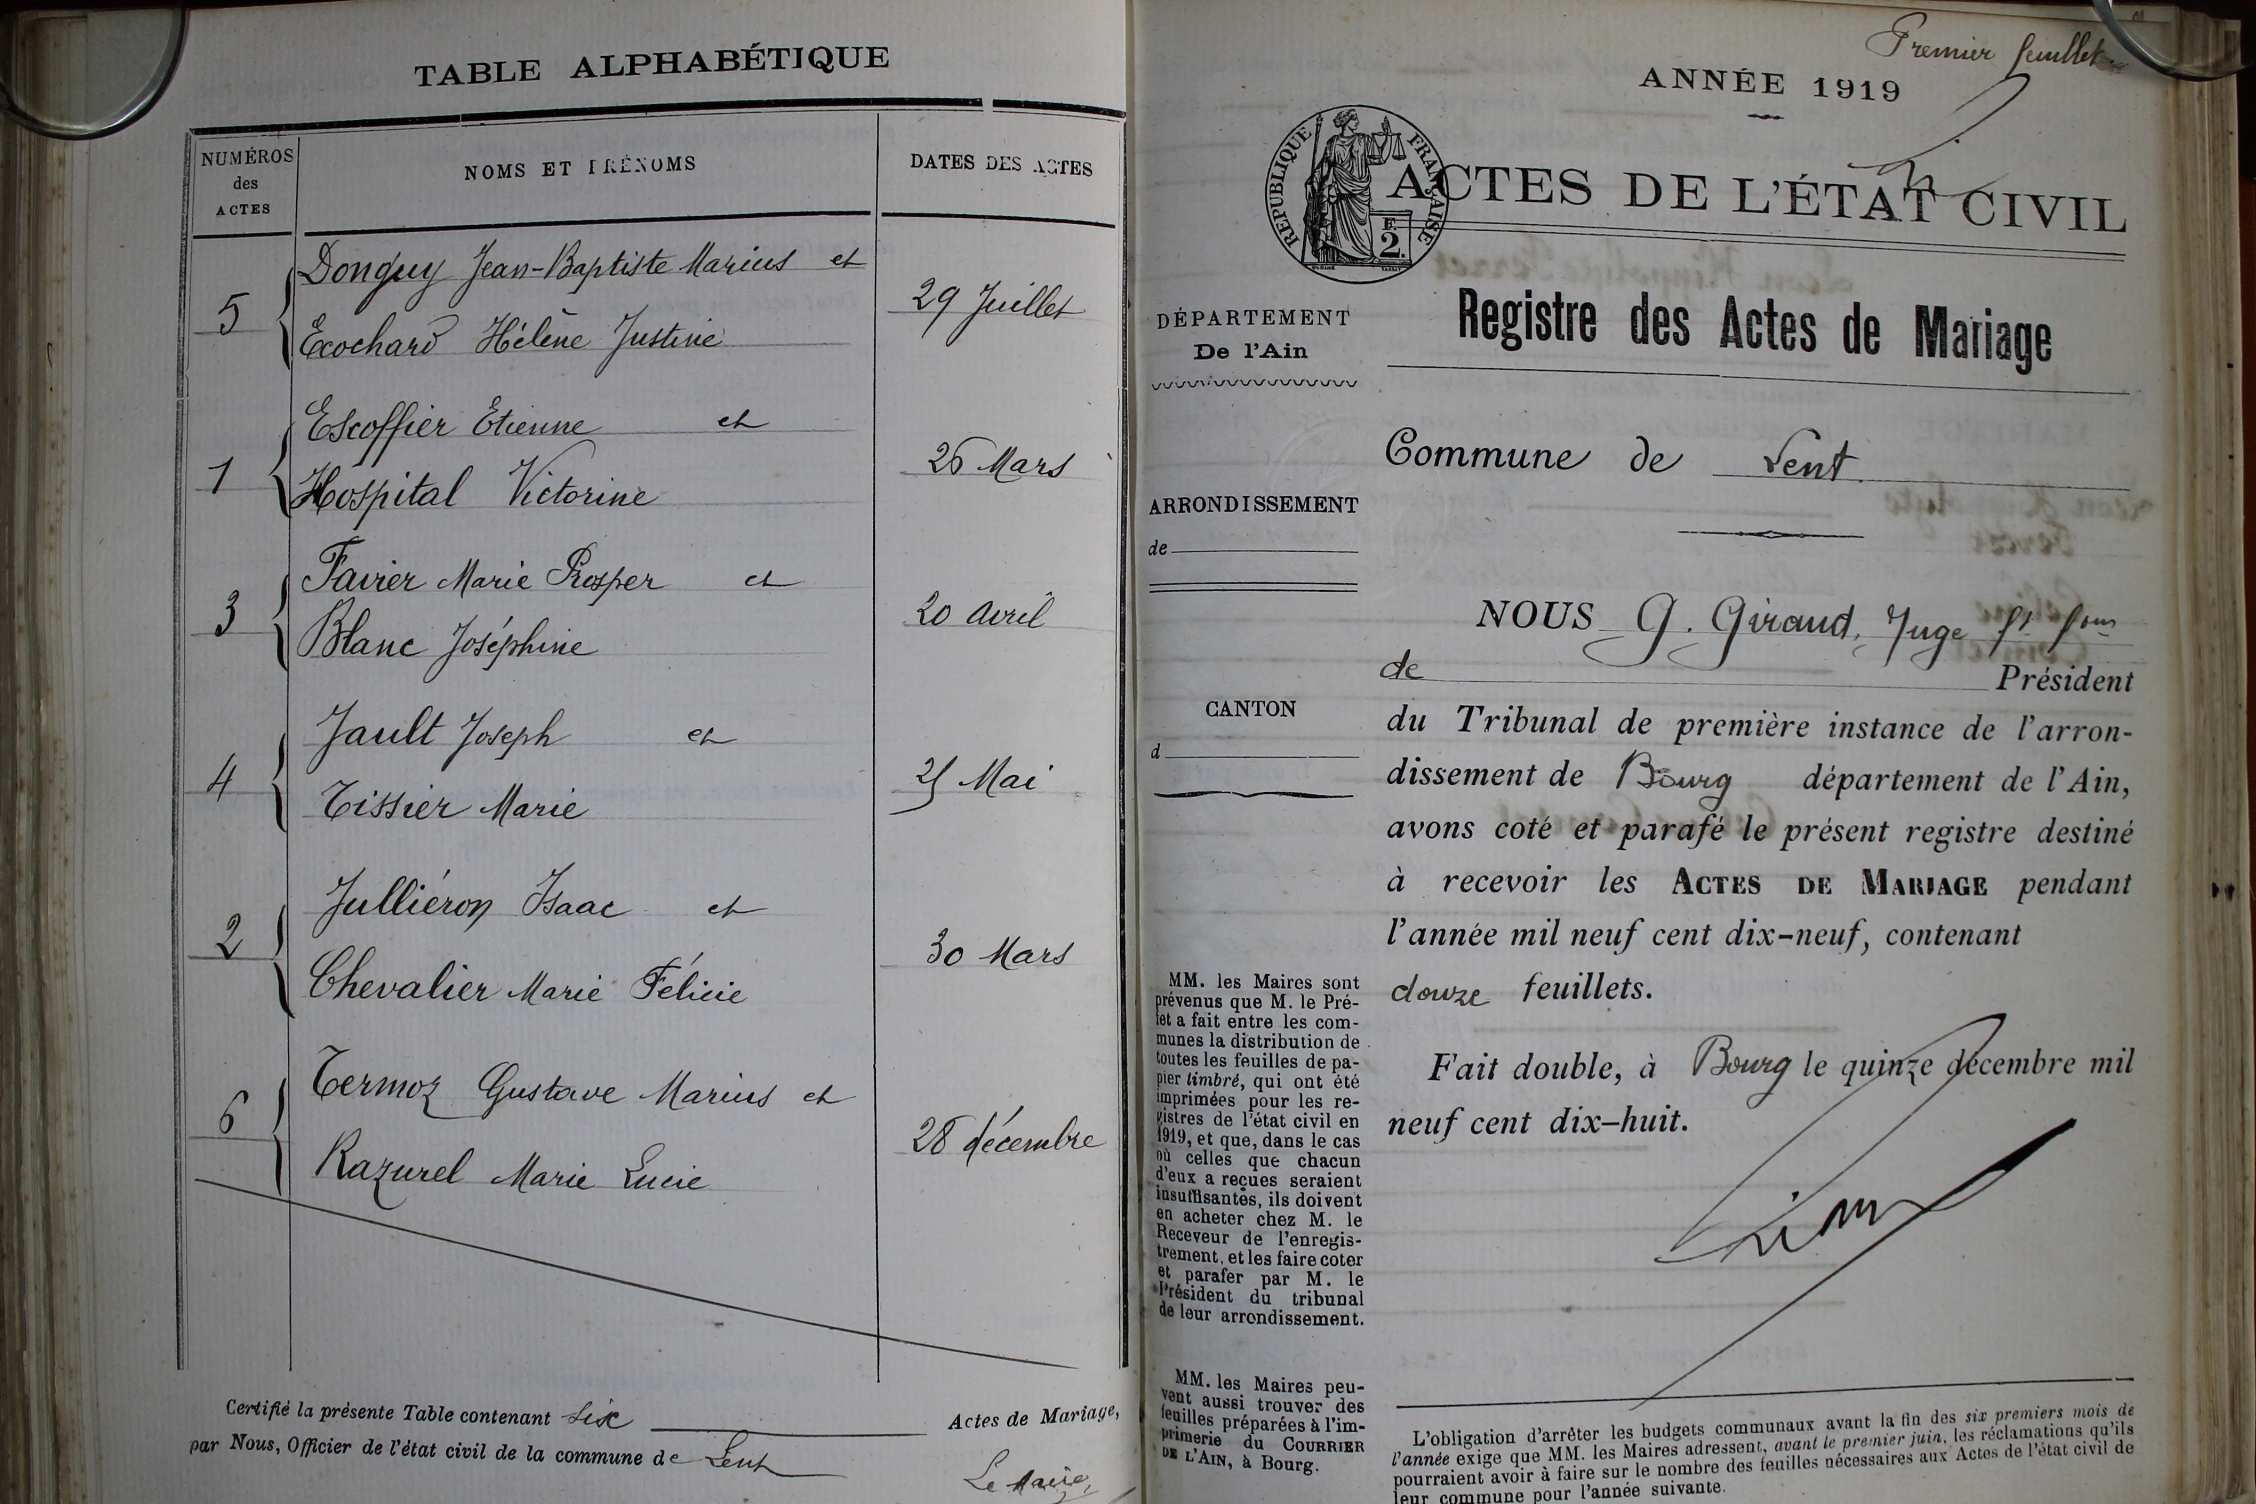 TABLE ALPHABÉTIQUE
NUMÉROS
des
ACTES
NOMS ET PRÉNOMS
DATES DES ACTES
5
Donguy Jean-Baptiste Marius et
Ecochard Hélène Justine
29 Juillet
1
Escoffier Etienne et
Hospital Victorine
26 Mars
3
Favier Marie Prosper et
Blanc Joséphine
20 Avril
4
Jault Joseph et
Tissier Marie
Mai
2
Julliéron Isaac et
Chevalier Marie Félicie
30 Mars
6
Termoz Gustave Marius et
Razurel Marie Lucie
28 décembre
Certifié la présente Table contenant six Actes de Mariage,
par Nous, Officier de l'état civil de la commune de Lent
Le Maire,
Premier feuillet
ANNÉE 1919
RÉPUBLIQUE FRANÇAISE
2
ACTES DE L'ÉTAT CIVIL
DÉPARTEMENT
De l'Ain
ARRONDISSEMENT
de
CANTON
d
MM. les Maires sont
prévenus que M. le Pré-
fet a fait entre les com-
munes la distribution de
toutes les feuilles de pa-
pier timbré, qui ont été
imprimées pour les re-
gistres de l'état civil en
1919, et que, dans le cas
où celles que chacun
d'eux a reçues seraient
insuffisantes, ils doivent
en acheter chez M. le
Receveur de l'enregis-
trement, et les faire coter
et parafer par M. le
Président du tribunal
de leur arrondissement.
MM. les Maires peu-
vent aussi trouver des
feuilles préparées à l'im-
primerie du COURRIER
DE L'AIN, à Bourg.
Registre des Actes de Mariage
Commune de Lent
NOUS G. Giraud, Juge
de Président
du Tribunal de première instance de l'arron-
dissement de Bourg département de l'Ain,
avons coté et parafé le présent registre destiné
à recevoir les ACTES DE MARIAGE pendant
l'année mil neuf cent dix-neuf, contenant
douze feuillets.
Fait double, à Bourg le quinze décembre mil
neuf cent dix-huit.
L'obligation d'arrêter les budgets communaux avant la fin des six premiers mois de
l'année exige que MM. les Maires adressent, avant le premier juin, les réclamations qu'ils
pourraient avoir à faire sur le nombre des feuilles nécessaires aux Actes de l'état civil de
leur commune pour l'année suivante.